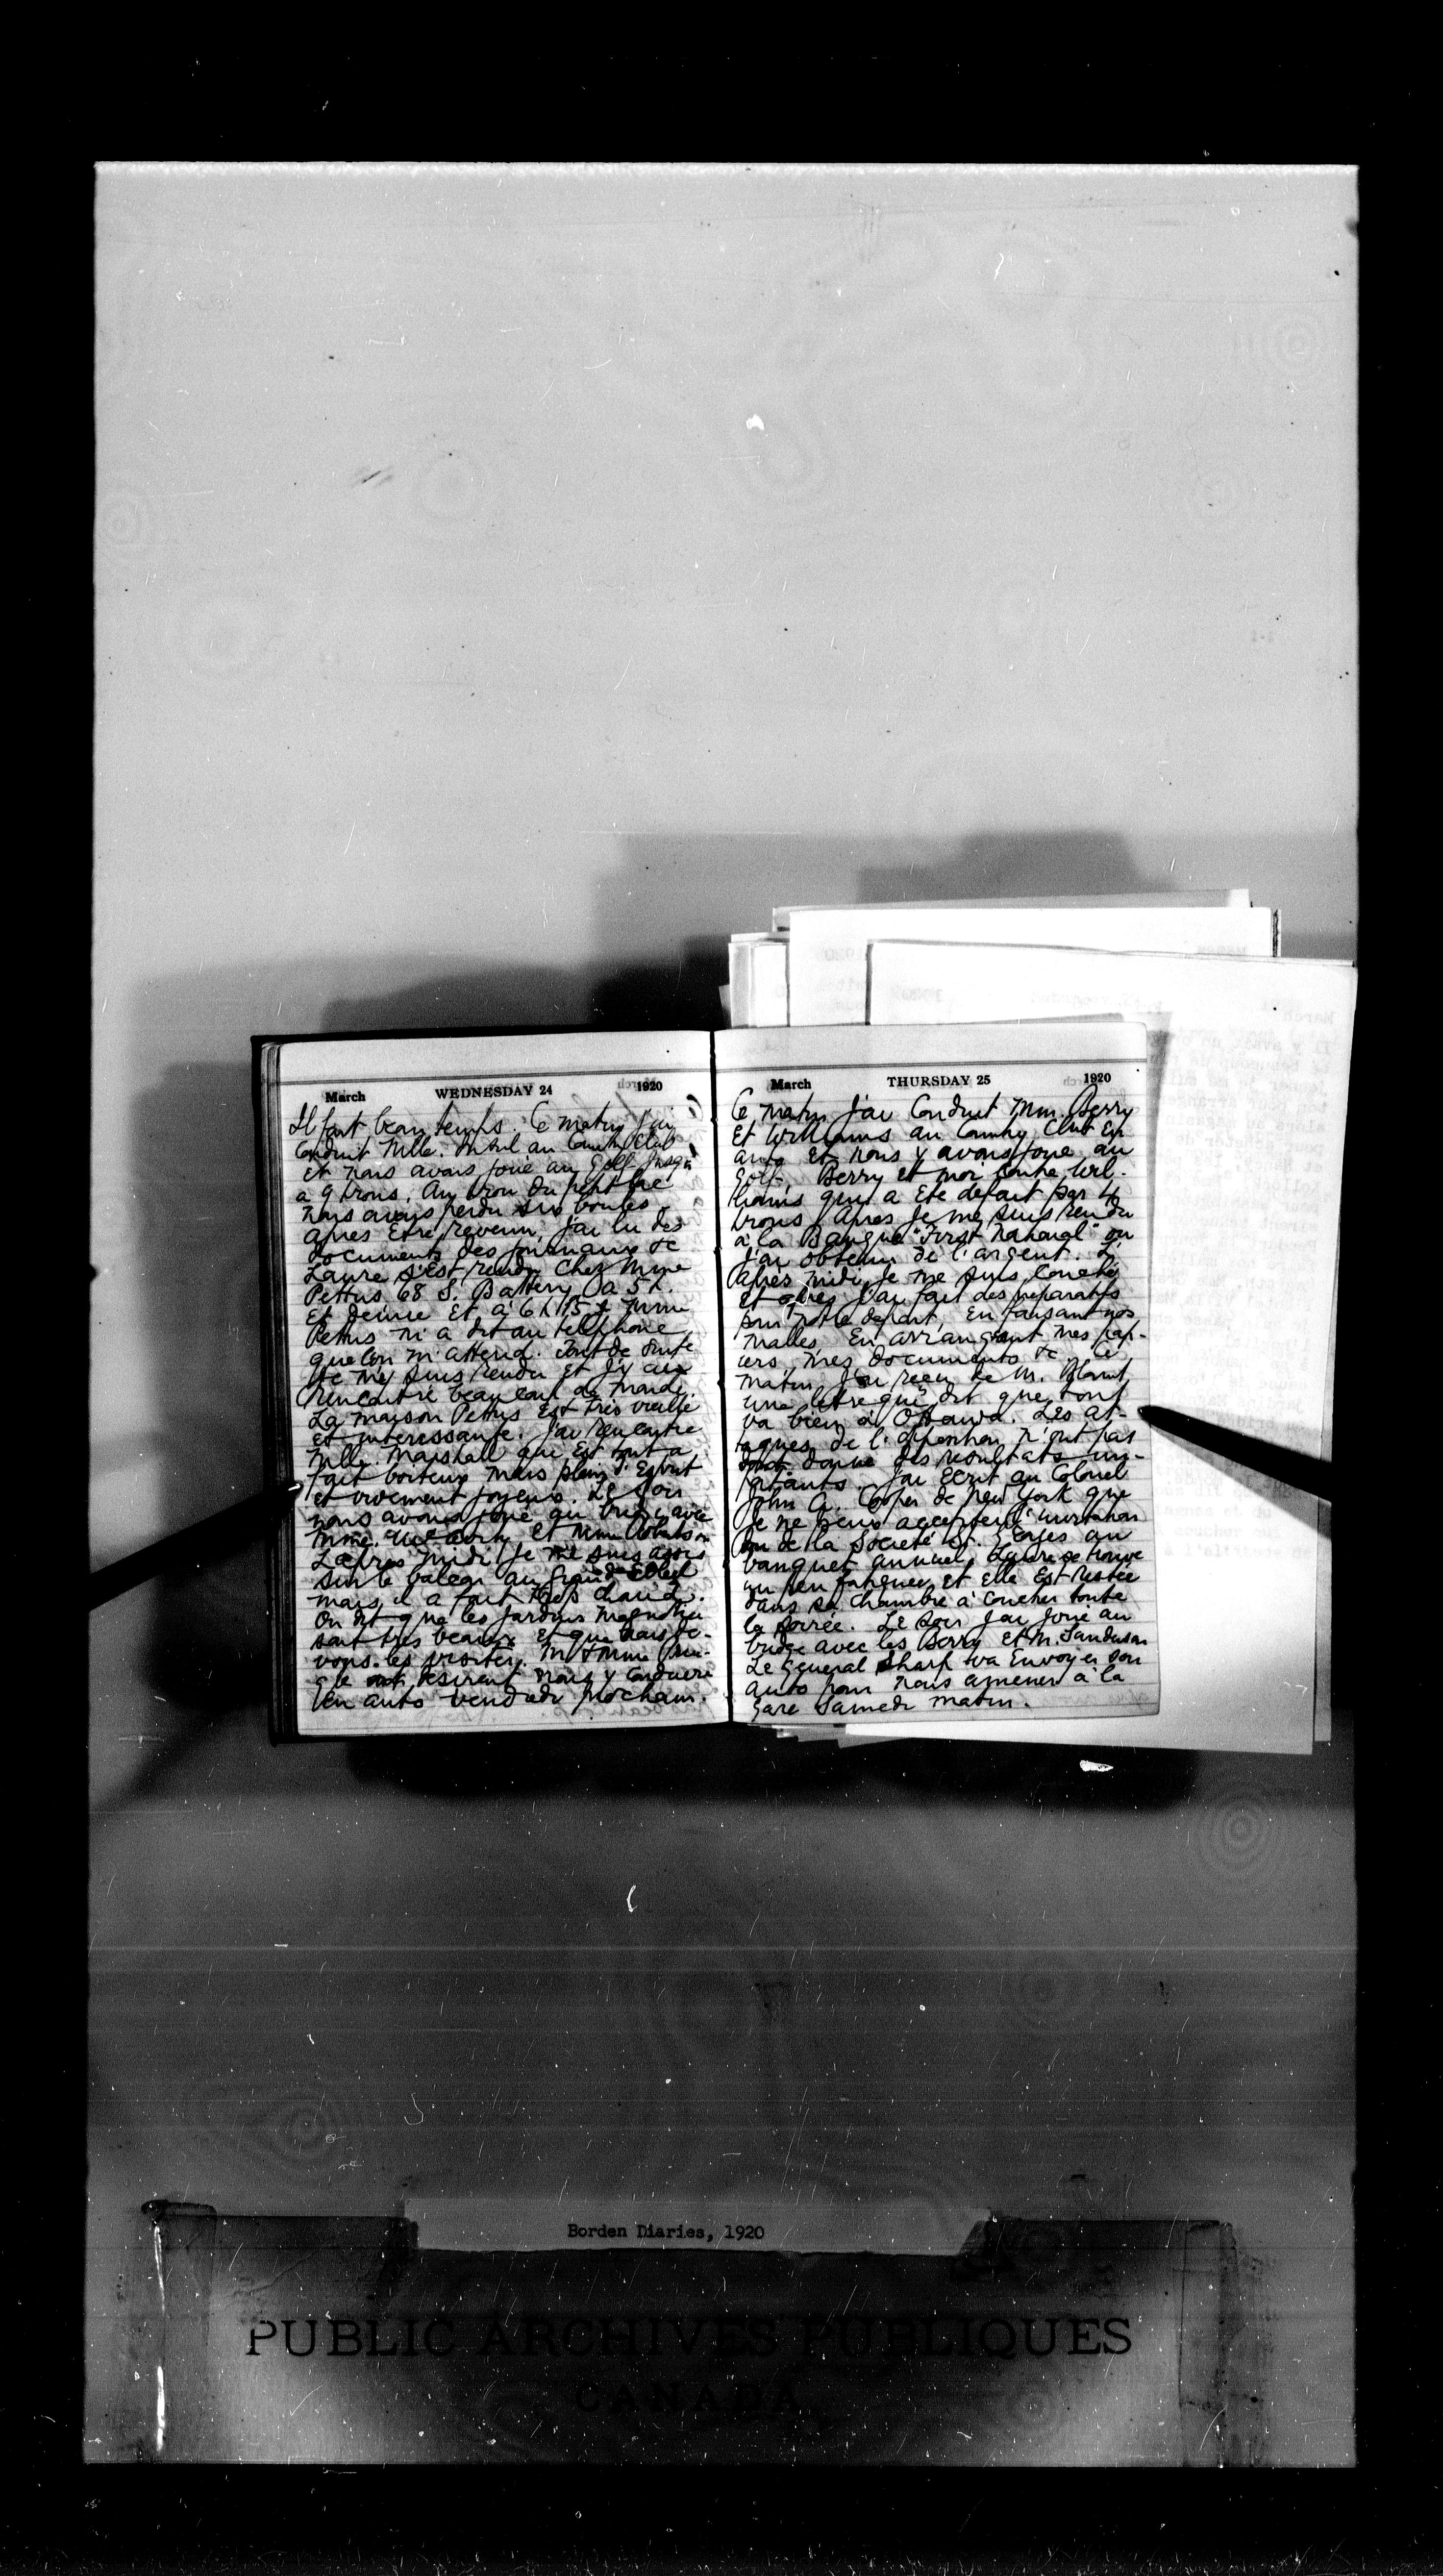 March WEDNESDAY 24 1920
Il fait beau temps. Ce matin j'ai
conduit Mlle. au Country Club
et nous avons joué au golf jusqu'
a 9 trous. Au trou du petit lac
nous avons perdu six boules.
Apres etre revenu, j'ai lu des
documents des journaux &c
Laure s'est rendu chez Mme
Pettus 68 S. Battery a 5 h.
et demie et à 6 h 15 Mme
Pettus m'a dit au telephone
que l'on m'attend. Tout de suite
je me suis rendu et j'y ai
rencontré beaucoup de monde.
La maison Pettus est très vieille
et interessante. J'ai rencontre
Mlle. Marshall qui est tout a
fait boiteux mais plein d'esprit
et vivement joyeux. Le soir
nous avons joué au bridge avec
Mme. et Mme Robertson
L'après midi je me suis assis
sur le balcon au grand soleil
mais il a fait très chaud.
On dit que les jardins Magnolia
sont très beaux et que nous de-
vons les visiter. M & Mme
desirent nous y conduire
en auto Vendredi prochain.
March THURSDAY 25 1920
Ce matin j'ai conduit MM. Berry
et Williams au Country Club en
auto et nous y avons joué au
golf, Berry et moi contre Wil-
liams qui a été defait par 4
trous. Apres je me suis rendu
à la Banque "First National" ou
j'ai obtenu de l'argent. L'
après midi je me suis couché
et après j'ai fait des preparatifs
pour notre depart, en faisant nos
malles, en arrangeant mes pap-
iers, mes documents &c. Ce
matin j'ai reçu de M. Blount
une lettre qui dit que tout
va bien à Ottawa. Les at-
taques de l'opposition n'ont pas
donné des resultats im-
portants. J'ai ecrit au Colonel
John A. Cooper de New York que
je ne peux accepter l'invitation
de la Société St. Georges au
banquet annuel. Laure se trouve
un peu fatiguée et elle est restée
dans sa chambre à coucher toute
la soirée. Le soir j'ai joué au
bridge avec les Berry et M. Sanderson
Le General Sharp va envoyer son
auto pour nous amener à la
gare Samedi matin.
Borden Diaries, 1920
PUBLIC ARCHIVES PUBLIQUES
CANADA